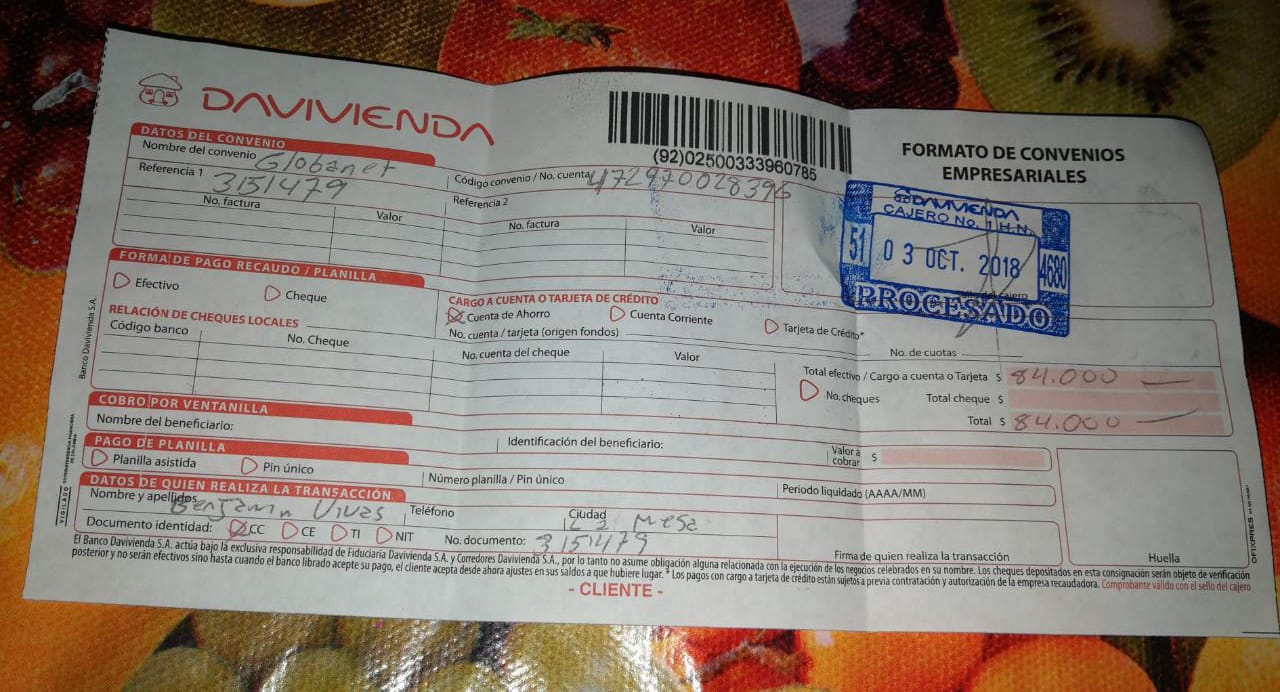 DAVIVIENDA
(92)02500333960785
FORMATO DE CONVENIOS
EMPRESARIALES
DATOS DEL CONVENIO
Nombre del convenio Globanet
Código convenio / No. cuenta 472970028396
Referencia 1 3151479
Referencia 2
No. factura Valor No. factura Valor
DAVIVIENDA
CAJERO No. 1 H.N.
51 03 OCT. 2018 4680
PROCESADO
FORMA DE PAGO RECAUDO / PLANILLA
Efectivo Cheque
CARGO A CUENTA O TARJETA DE CRÉDITO
Cuenta de Ahorro Cuenta Corriente Tarjeta de Crédito*
No. cuenta / tarjeta (origen fondos)
No. de cuotas
RELACIÓN DE CHEQUES LOCALES
Código banco No. Cheque No. cuenta del cheque Valor
Total efectivo / Cargo a cuenta o Tarjeta $ 84.000
No. cheques Total cheque $
Total $ 84.000
COBRO POR VENTANILLA
Nombre del beneficiario: Identificación del beneficiario: Valor a
cobrar $
PAGO DE PLANILLA
Planilla asistida Pin único Número planilla / Pin único Periodo liquidado (AAAA/MM)
DATOS DE QUIEN REALIZA LA TRANSACCIÓN
Nombre y apellidos Benjamin Vivas Teléfono Ciudad La Mesa
Documento identidad: CC CE TI NIT No. documento: 3151479
Firma de quien realiza la transacción Huella
El Banco Davivienda S.A. actúa bajo la exclusiva responsabilidad de Fiduciaria Davivienda S.A. y Corredores Davivienda S.A., por lo tanto no asume obligación alguna relacionada con la ejecución de los negocios celebrados en su nombre. Los cheques depositados en esta consignación serán objeto de verificación
posterior y no serán efectivos sino hasta cuando el banco librado acepte su pago, el cliente acepta desde ahora ajustes en sus saldos a que hubiere lugar. * Los pagos con cargo a tarjeta de crédito están sujetos a previa contratación y autorización de la empresa recaudadora. Comprobante válido con el sello del cajero
- CLIENTE -
Banco Davivienda S.A.
VIGILADO SUPERINTENDENCIA FINANCIERA
DE COLOMBIA
OFIXPRES